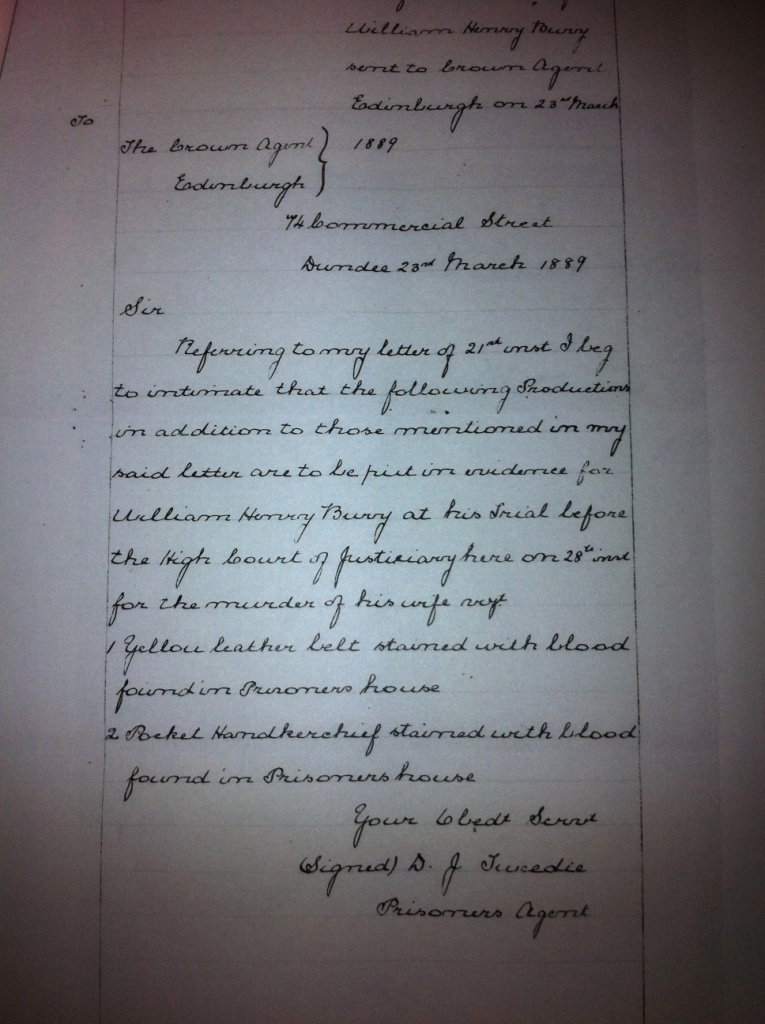 William Henry Bury
sent to Crown Agent
Edinburgh on 23rd March
To
The Crown Agent } 1889
Edinburgh
74 Commercial Street
Dundee 23rd March 1889
Sir
Referring to my letter of 21st inst I beg
to intimate that the following Productions
in addition to those mentioned in my
said letter are to be put in evidence for
William Henry Bury at his Trial before
the High Court of Justiciary here on 28th inst
for the murder of his wife vizt
1 Yellow leather belt stained with blood
found in Prisoners house
2 Pocket Handkerchief stained with blood
found in Prisoners house
Your Obedt Servt
(Signed) D. J Tweedie
Prisoners Agent